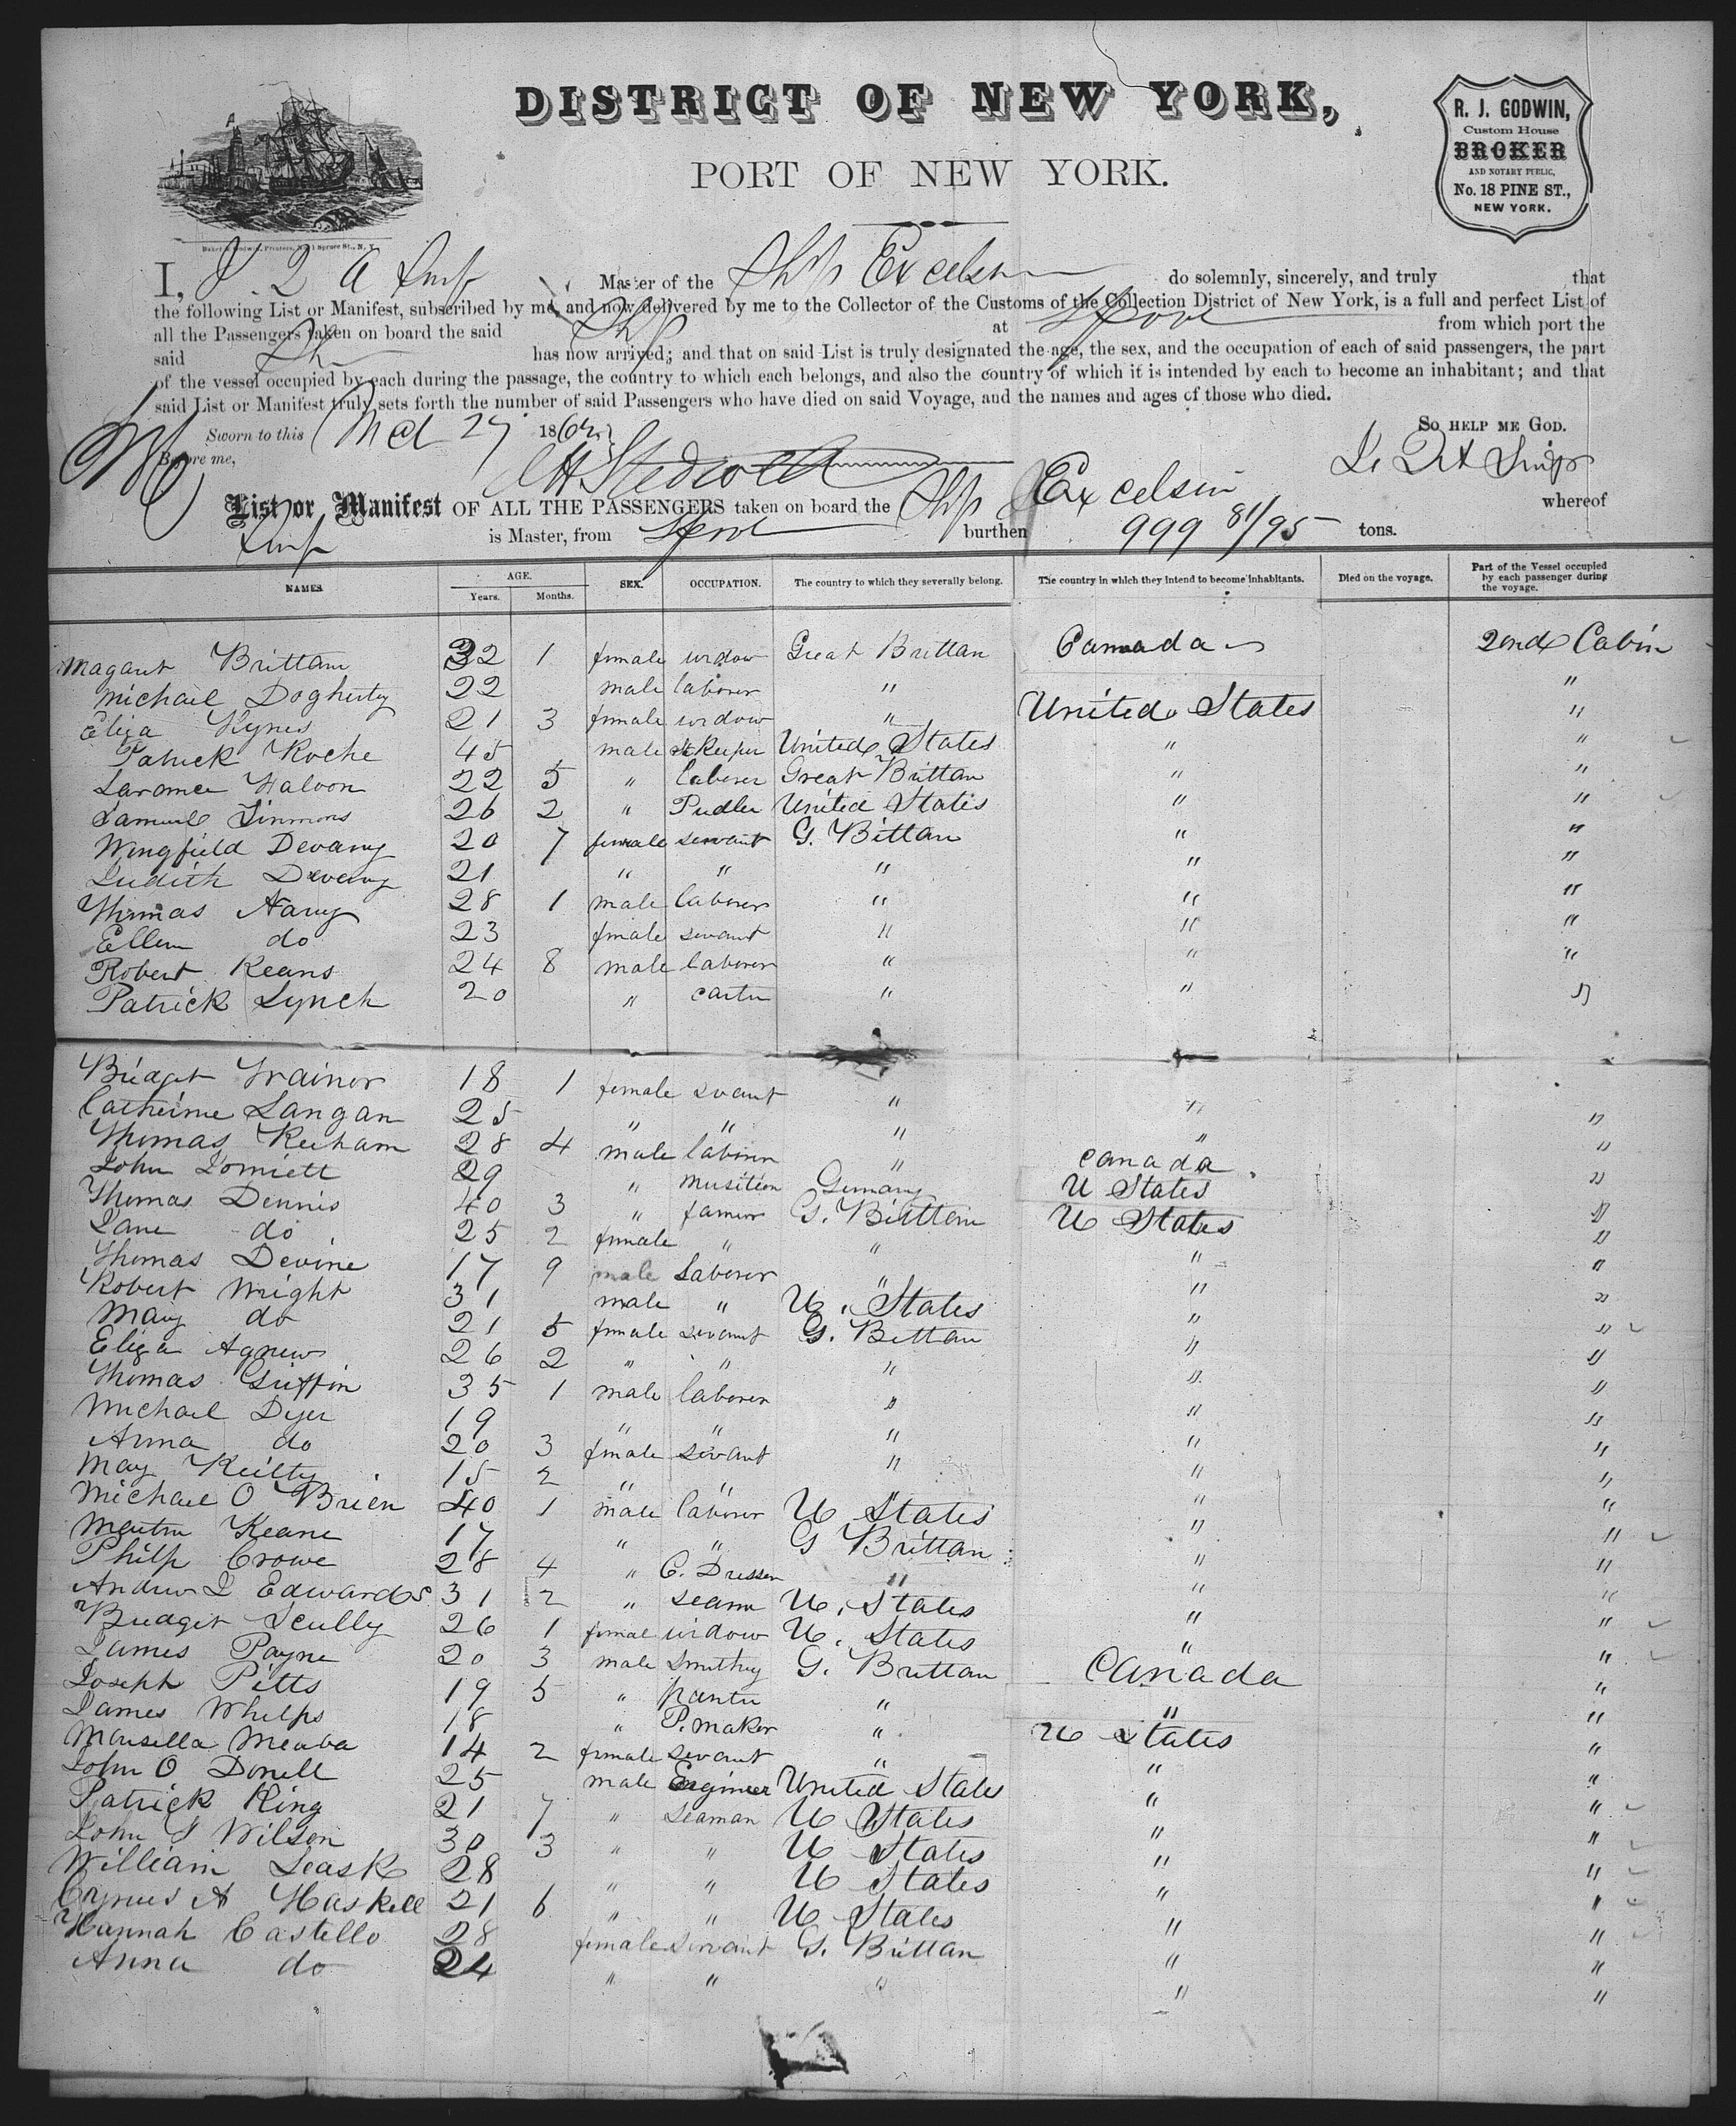 DISTRICT OF NEW YORK,
PORT OF NEW YORK.
R. J. GODWIN,
Custom House
BROKER
AND NOTARY PUBLIC,
No. 18 PINE ST.,
NEW YORK.
Baker & Godwin, Printers, No. 1 Spruce St., N. Y.
I, Master of the Ship Excelsior do solemnly, sincerely, and truly that
the following List or Manifest, subscribed by me, and now delivered by me to the Collector of the Customs of the Collection District of New York, is a full and perfect List of
all the Passengers taken on board the said Ship at Lpool from which port the
said Ship has now arrived; and that on said List is truly designated the age, the sex, and the occupation of each of said passengers, the part
of the vessel occupied by each during the passage, the country to which each belongs, and also the country of which it is intended by each to become an inhabitant; and that
said List or Manifest truly sets forth the number of said Passengers who have died on said Voyage, and the names and ages of those who died.
Sworn to this 27 186 SO HELP ME GOD.
Before me,
List or Manifest OF ALL THE PASSENGERS taken on board the Ship Excelsior whereof
is Master, from Lpool burthen 999 81/95 tons.
NAMES. AGE. Years. Months. SEX. OCCUPATION. The country to which they severally belong. The country in which they intend to become inhabitants. Died on the voyage. Part of the Vessel occupied by each passenger during the voyage.
Magaret Brittain 32 1 female widow Great Brittan Canada 2nd Cabin
Michael Dogherty 22 male laborer " "
Eliza Kynes 21 3 female widow " United States "
Patrick Roche 45 male St Keeper United States " "
Larance Halvon 22 5 " laborer Great Brittan " "
Samuel Simmons 26 2 " Pudler United States " "
Wingfield Devany 20 7 female servant G. Bittan " "
Judith Devany 21 " " " " "
Thomas Nary 28 1 male laborer " " "
Ellen do 23 female servant " " "
Robert Keans 24 8 male laborer " " "
Patrick Lynch 20 " carter " " "
Bridget Trainor 18 1 female servant " " "
Catherine Langan 25 " " " " "
Thomas Keeham 28 4 male laborer " Canada "
John 29 " musition Germany U States "
Thomas Dennis 40 3 " farmer G. Brittain U States "
Jane do 25 2 female " " " "
Thomas Devine 17 9 male Laborer " " "
Robert Wright 31 male " U. States " "
Mary do 21 5 female servant G. Bittan " "
Eliza Agnew 26 2 " " " " "
Thomas Griffin 35 1 male laborer " " "
Michael Dyer 19 " " " " "
Anna do 20 3 female servant " " "
May Keilty 15 2 " " " " "
Michael O Brien 40 1 male laborer U States " "
Martin Keane 17 " " G Brittan " "
Philip Crowe 28 4 " C. Dresser " " "
Andrew J Edwards 31 2 " seaman U. States " "
Bridget Scully 26 1 female widow U. States " "
James Payne 20 3 male Smithy G. Brittan Canada "
Joseph Pitts 19 5 " painter " " "
James Whelps 18 " P. maker " U States "
14 2 female servant " " "
John O Donell 25 male Engineer United States " "
Patrick King 21 7 " Seaman U States " "
John S Wilson 30 3 " " U States " "
William Leask 28 " " U States " "
Cyrus A Haskell 21 6 " " U States " "
Hannah Castello 28 female servant G. Brittan " "
Anna do 24 " " " " "